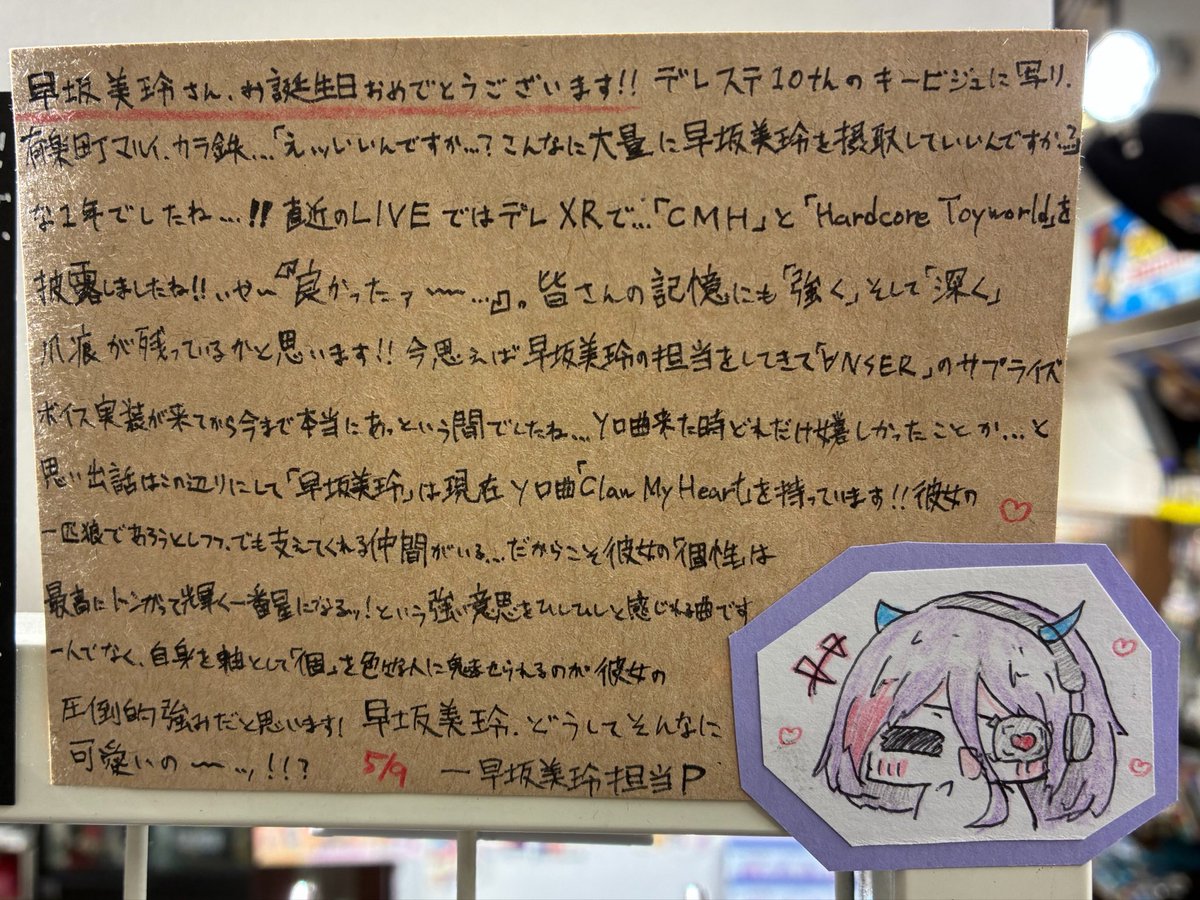 早坂美玲さん、お誕生日おめでとうございます!! デレステ10thのキービジュに写り、
有楽町マルイ、カラ鉄…「えッいいんですか…?こんなに大量に早坂美玲を摂取していいんですか…?」
な1年でしたね…!! 直近のLIVEではデレXRで…「CMH」と「Hardcore Toyworld」を
披露しましたね!! いや〜『良かったァ〜〜…』。皆さんの記憶にも「強く」そして「深く」
爪痕が残っているかと思います!! 今思えば早坂美玲の担当をしてきて「∀NSWER」のサプライズ
ボイス実装が来てから今まで本当にあっという間でしたね…ソロ曲来た時どれだけ嬉しかったことか…と
思い出話はこの辺りにして「早坂美玲」は現在ソロ曲「Claw My Heart」を持っています!! 彼女の
一匹狼であろうとしつつ、でも支えてくれる仲間がいる…だからこそ彼女の「個性」は
最高にトンがって輝く一番星になるッ!という強い意思をひしひしと感じれる曲です
一人でなく、自身を軸として「個」を色んな人に魅せられるのが彼女の
圧倒的強みだと思います! 早坂美玲、どうしてそんなに
可愛いの〜〜ッ!!? 5/9 ー早坂美玲担当P